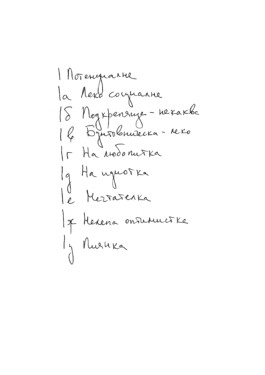 1 Потенциалне
1а Леко социалне
1б Подкрепяще - некаквс
1в Бунтовническа - леко
1г На любопитка
1д На идиотка
1е Мечтателка
1ж Нелепа оптимистка
1з Пиянка